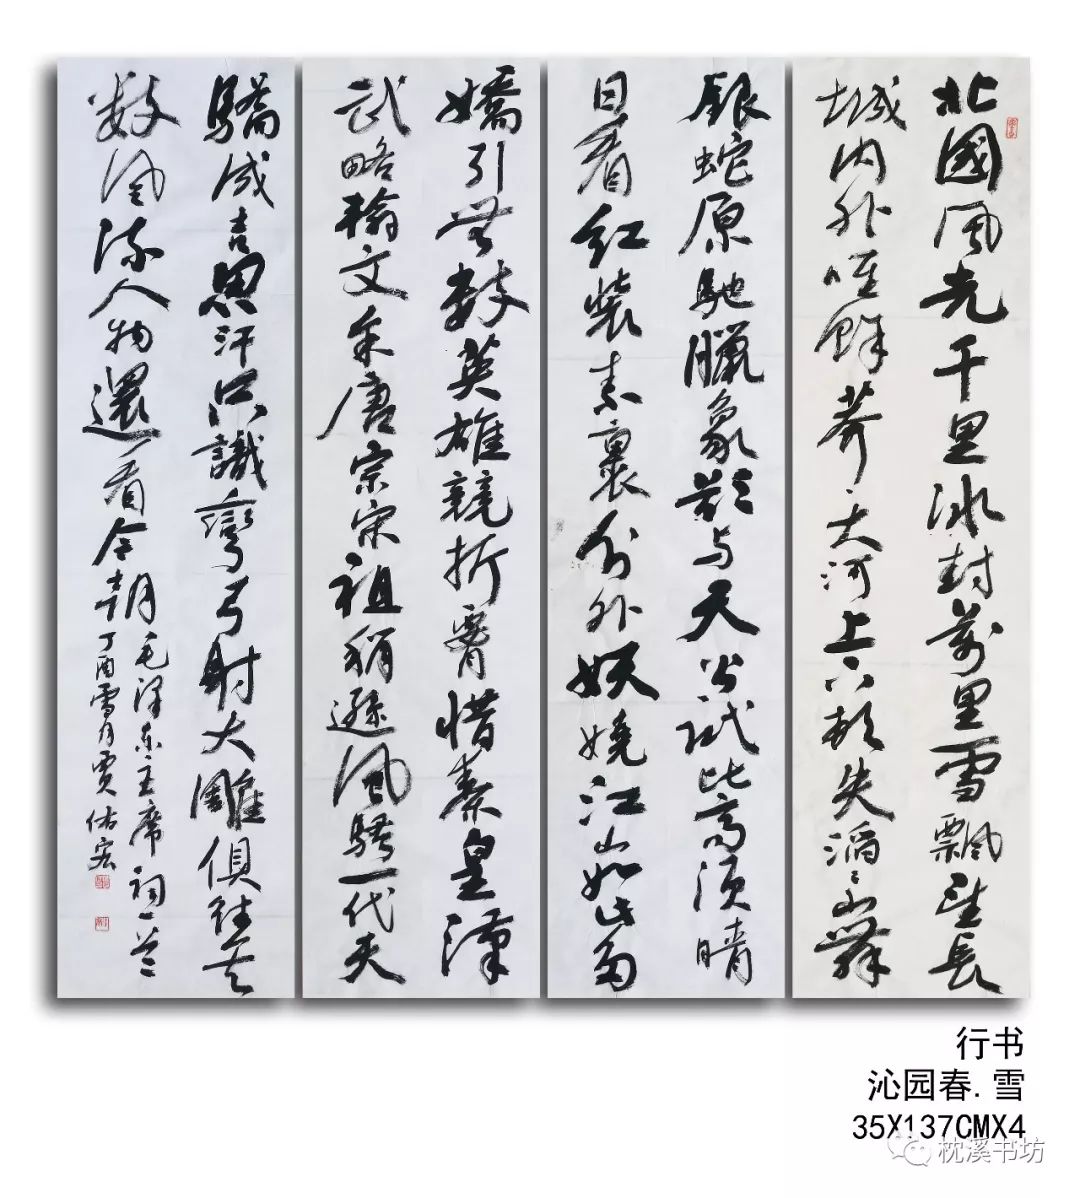 北國風光千里冰封萬里雪飄望長
城内外唯餘莽大河上下頓失滔々山舞
銀蛇原馳臘象欲与天公試比高須晴
日看紅裝素裹分外妖嬈江山如此多
嬌引無數英雄競折腰惜秦皇漢
武略輸文采唐宗宋祖稍遜風騷一代天
驕成吉思汗只識彎弓射大雕俱往矣
數風流人物還看今朝
毛澤東主席詞一首
丁酉雪月賈佑宏
行书
沁园春.雪
35X137CMX4
枕溪书坊